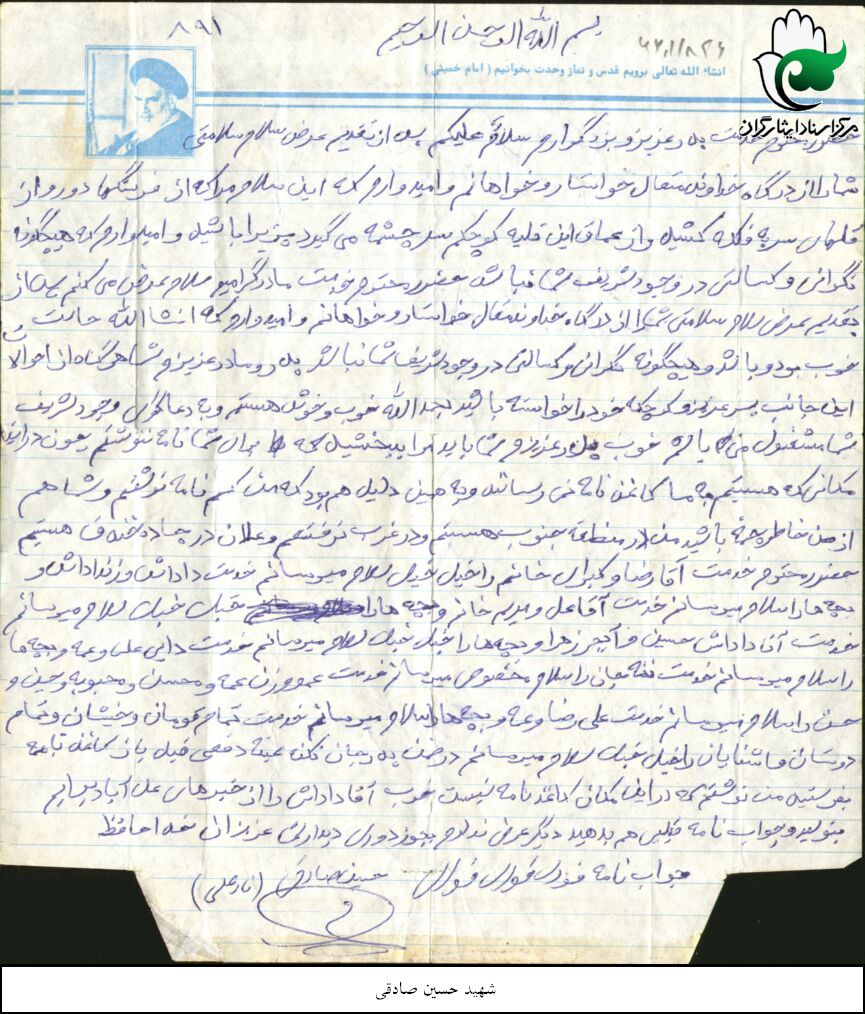 بسم الله الرحمن الرحیم
۸۹۱
انشاء الله تعالی برویم قدس و نماز وحدت بخوانیم ( امام خمینی )
مرکز اسناد ایثارگران
حضور محترم خدمت پدر عزیز و بزرگوارم سلام علیکم پس از تقدیم عرض سلام سلامتی
شما را از درگاه خداوند متعال خواستار و خواهانم و امیدوارم که این سلام مرا که از فرسنگها دور و از
قلبهای سر به فلک کشیده و از عماق این قلبه کوچکم سرچشمه می گیرد پزیرا باشید و امیدوارم که هیچگونه
نگرانی و کسالتی در وجود شریف شما نباشد حضور محترم خدمت مادر گرامیم سلام عرض می کنم پس از
تقدیم عرض سلام سلامتی شما را از درگاه خداوند متعال خواستار و خواهانم و امیدوارم که انشاالله حالت
خوب بوده باشد و هیچگونه نگرانی و کسالتی در وجود شریف شما نباشد پدر و مادر عزیزم شاهی گاه از احوالات
این جانب پسر عزیز و کوچکه خود را خواسته باشید بحمدالله خوب و خوش هستم و به دعاگوی وجود شریف
شما مشغول می باشم خوب پدر عزیزم شما باید مرا ببخشید که برای شما نامه ننوشتم چون در این
مکانی که هستیم به ما کاغذ نامه نمی رسانند و به همین دلیل هم بود که من کم نامه نوشتم و شما هم
از من خاطر جمع باشید من در منطقه جنوب هستم و در غرب نرفتم و علان در چاده خندق هستیم
حضور محترم خدمت آقا رضا و کبرای خانم را خیل خیل سلام میرسانم خدمت داداش و زنداداش و
بچه ها را سلام میرسانم خدمت آقا علی و مریم خانم و بچه ها را خیلی خیلی سلام میرسانم
خدمت آقا داداش حسین و آبجی زهرا و بچه ها را خیلی خیلی سلام میرسانم خدمت دایی علی و عمه و بچه ها
را سلام میرسانم خدمت ننه جان را سلام مخصوص میرسانم خدمت عمو و زن عمه و محسن و محبوبه و حسین و
حسن را سلام میرسانم خدمت علی رضا و عمه و بچه ها را سلام میرسانم خدمت تمام قومان و خیشان و تمام
دوستان و اشنایان را خیلی خیلی سلام میرسانم در ضمن پدر جان نکنه عینه دفعی قبل باز کاغذ نامه
بفرستید من نوشتم که در این مکان کاغذ نامه نیست خوب آقا داداش را از خبرهای علی آباد برایم
بنویسد و جواب نامه قبلی هم بدهید دیگر عرضی ندارم بجوز دوری دیدارتی عزیزان خداحافظ
جواب نامه فوری فوری فوری حسین صادقی
شهید حسین صادقی